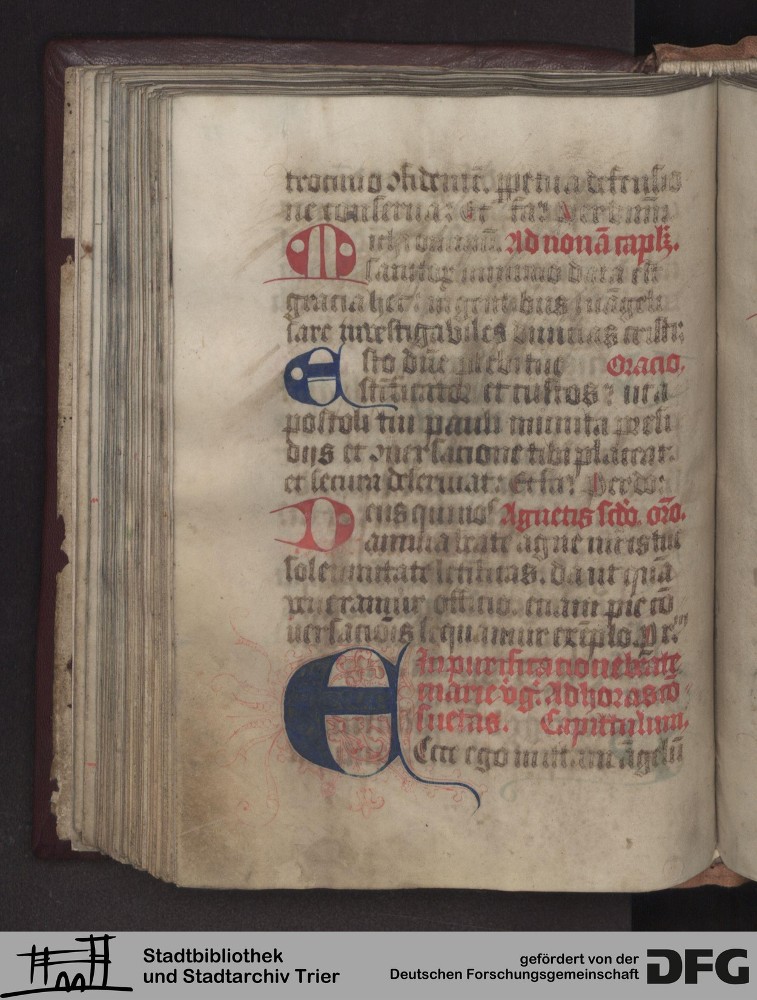 trocinio ɔfidentē. ꝑpetua defensio
ne conserua: Et
ichi omnium. Ad nonā capl̄.
sanctoꝝ minimo data est
gracia hec: in gentibus euāgeli
sare inuestigabiles diuitias cristi:
Esto dn̄e plebi tue Oracio.
sc̄ificator et custos: ut a
postoli tui pauli munita presi
diis et ɔuersatione tibi placeat:
et secura deseruiat: Et
Deus qui nos Agnetis scd̄o. orō.
annua beate agne
solempnitate letificas. da ut quā
ueneramur officio. etiam pie cō
uersatiōis sequamur exēplo. P
In purificatione
marie vg̃. Ad horas cō
suetas. Capitulum.
Ecce ego mittam āgelū
Stadtbibliothek
und Stadtarchiv Trier
gefördert von der
Deutschen Forschungsgemeinschaft
DFG